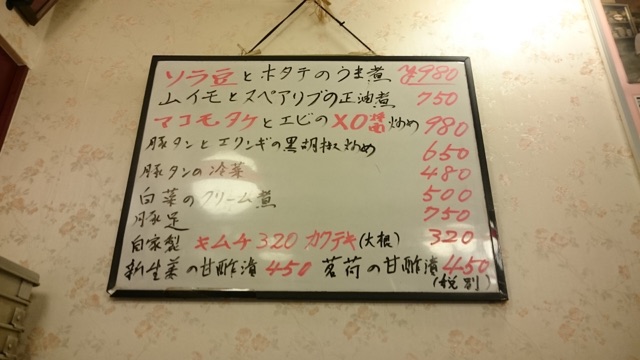 ソラ豆とホタテのうま煮 ¥980
山イモとスペアリブの正油煮 750
マコモタケとエビのXO醤炒め 980
豚タンとエリンギの黒胡椒炒め 650
豚タンの冷菜 480
白菜のクリーム煮 500
豚足 750
自家製 キムチ 320 カクテキ(大根) 320
新生姜の甘酢漬 450 茗荷の甘酢漬 450
(税別)